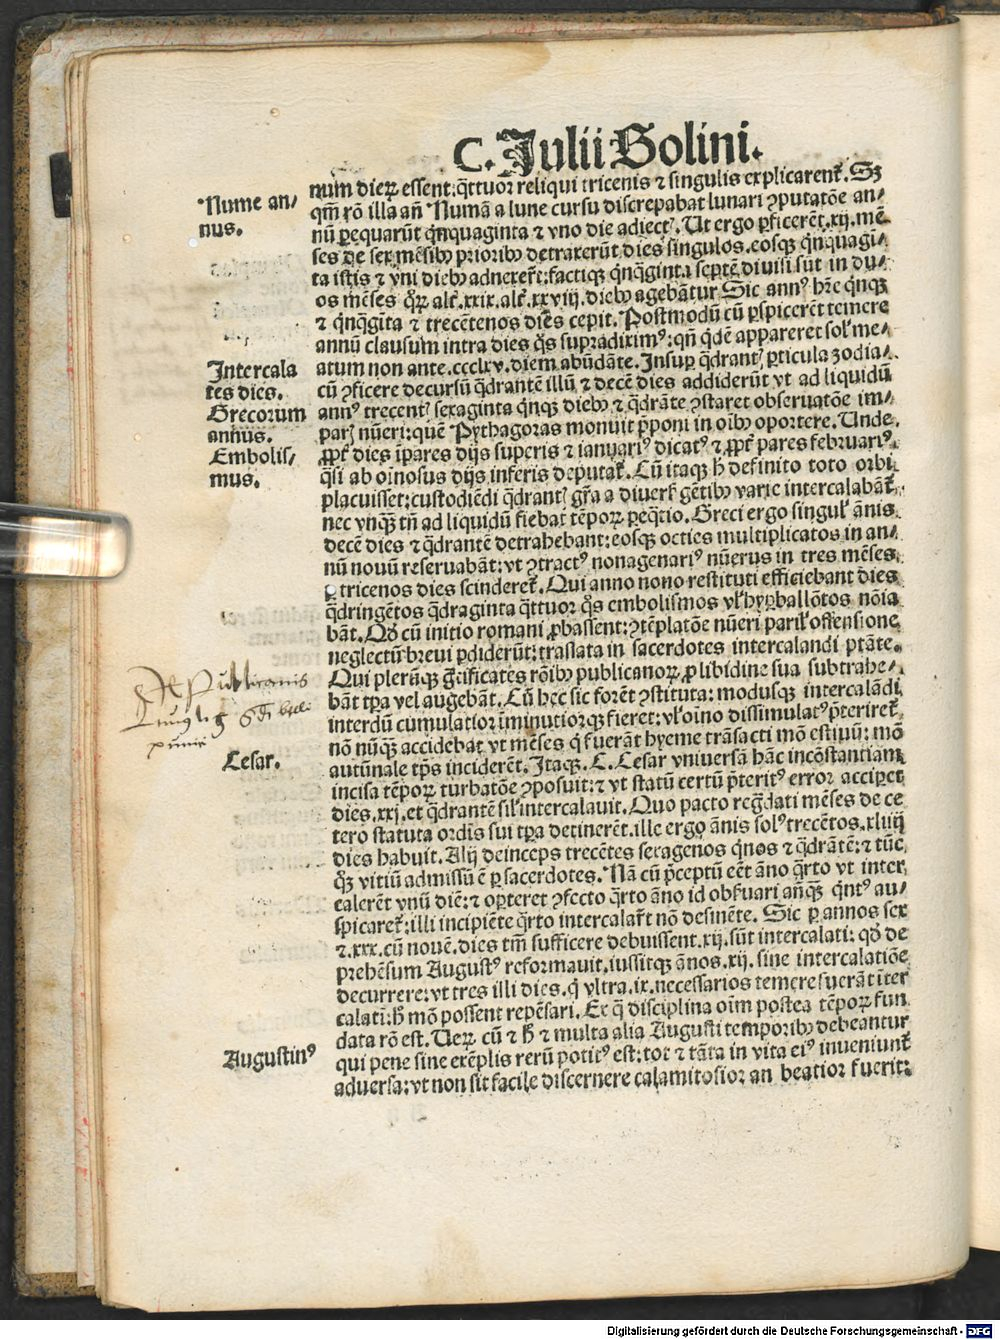 C. Julii Solini.
num dieꝝ essent: q̄ttuor reliqui tricenis ⁊ singulis explicarent᷑. Sꝫ
Nume an-
nus.
qm̄ rō illa añ Numā a lune cursu discrepabat lunari ꝯputatōe an-
nū ꝑequarūt qͥnquaginta ⁊ vno die adiectꝰ. Ut ergo ꝑficerēt .xij. mē-
ses de sex mēsibꝰ prioribꝰ detraxerūt dies singulos. eosqꝫ qͥnquagī-
ta istis ⁊ vni diebꝰ adnexer̄t: factiqꝫ qͥnqͣginta septē diuisi sūt in du-
os mēses qͦꝝ alt̄ .xxix. alt̄ .xxviij. diebꝰ agebātur Sic annꝰ hr̄e qͥnqꝫ
⁊ qͥnqͣgīta ⁊ trecētenos dies cepit. Postmodū cū ꝑspicerēt temere
annū clausum intra dies qͦs supradiximꝰ: qn̄ qͥdē appareret sol̕ me-
Intercala
tes dies.
atum non ante .ccclxv. diem abūdāte. Insuꝑ qͣdrantꝭ ꝑticula zodia-
cū ꝯficere decursū qͣdrantē illū ⁊ decē dies addiderūt vt ad liquidū
Grecorum
annus.
annꝰ trecentꝭ sexaginta qͥnqꝫ diebꝰ ⁊ qͣdrāte ꝯstaret obseruatōe im-
parꝭ nūeri: quē Pythagoras monuit p̄poni in oībꝰ oportere. Unde
Embolis-
mus.
ꝓpt̄ dies īpares dijs superis ⁊ ianuariꝰ dicatꝰ ⁊ ꝓpt̄ pares februariꝰ
qͣsi ab oīnosus dijs inferis deputat᷑. Cū itaqꝫ h̄ definito toto orbi
placuisset: custodiēdi qͣdrantꝭ gr̄a a diuers̄ gētibꝰ varie intercalabāt᷑.
nec vnqͣꝫ tn̄ ad liquidū fiebat tēporꝝ ꝑeqͣtio. Greci ergo singul̕ ānis
decē dies ⁊ qͣdrantē detrahebant: eosqꝫ octies multiplicatos in an-
nū nouū reseruabāt: vt ꝯtractꝰ nonagenariꝰ nūerus in tres mēses
ꝑ tricenos dies scinderet᷑. Qui anno nono restituti efficiebant dies
qͣdringētos qͣdraginta qͣttuor qͦs embolismos vl̕ hyꝑballōtos nōia
bāt. Qd̕ cū initio romani ꝓbassent: ꝯtēplatōe nūeri paril̕ offensione
neglectū breui ꝑdiderūt: traslata in sacerdotes intercalandi ptāte.
Qui plerūqꝫ gͣtificātes rōibꝰ publicanorꝝ ꝓ libidine sua subtrahe-
De Publicanis
bāt tꝑa vel augebāt. Cū hec sic forēt ꝯstituta: modusqꝫ intercalādi
interdū cumulatior īminutiorqꝫ fieret: vl̕ oīno dissimulatꝰ p̄teriret᷑
nō nūqͣꝫ accidebat vt mēses qͥ fuerāt hyeme trāsacti mō estiuū: mō
Cesar.
autūnale tp̄s inciderēt. Itaqꝫ .C. Cesar vniuersā hāc incōstantiam
incisa tēporꝝ turbatōe ꝯposuit: ⁊ vt statū certū p̄teritꝰ error acciꝑet
dies .xxj. et qͣdrantē sil̕ intercalauit. Quo pacto regͣdati mēses de ce
tero statuta ordīs sui tꝑa detinerēt. ille ergo ānis solꝰ trecētos .xliiij
dies habuit. Alij deinceps trecētes sexagenos qͥnos ⁊ qͣdrātē: ⁊ tūc
qͦꝫ vitiū admissū ē ꝑ sacerdotes. Nā cū p̄ceptū eēt āno qͣrto vt inter
calerēt vnū diē: ⁊ oꝑteret ꝯfecto qͣrto āno id obẜuari an̄qͣꝫ qͥntꝰ au-
spicaret᷑: illi incipiēte qͣrto intercalar̄t nō desinēte. Sic ꝑ annos sex
⁊ .xxx. cū nouē. dies tm̄ sufficere debuissent .xij. sūt intercalati: qd̕ de
prehēsum Augustꝰ reformauit. iussitqꝫ ānos .xij. sine intercalatiōe
decurrere: vt tres illi dies. qͥ vltra .ix. necessarios temere fuerāt īter
calati: h̄ mō possent repēsari. Ex qͣ disciplina oīm postea tēporꝝ fun
data rō est. Uerꝝ cū ⁊ h̄ ⁊ multa alia Augusti temporibꝰ debeantur
Augustinꝰ
qui pene sine exēplis rerū potitꝰ est: tot ⁊ tāta in vita eiꝰ inueniunt᷑
aduersa: vt non sit facile discernere calamitosior an beatior fuerit:
Digitalisierung gefördert durch die Deutsche Forschungsgemeinschaft - DFG